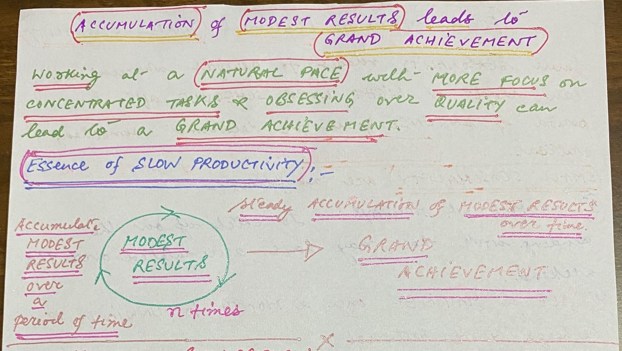 ACCUMULATION of MODEST RESULTS leads to
GRAND ACHIEVEMENT
Working at a NATURAL PACE with MORE FOCUS on
CONCENTRATED TASKS & OBSESSING over QUALITY can
lead to a GRAND ACHIEVEMENT.
Essence of SLOW PRODUCTIVITY:-
Steady ACCUMULATION of MODEST RESULTS
over time.
Accumulate
MODEST
RESULTS
over
a
period of time
MODEST
RESULTS
n times
GRAND
ACHIEVEMENT
x